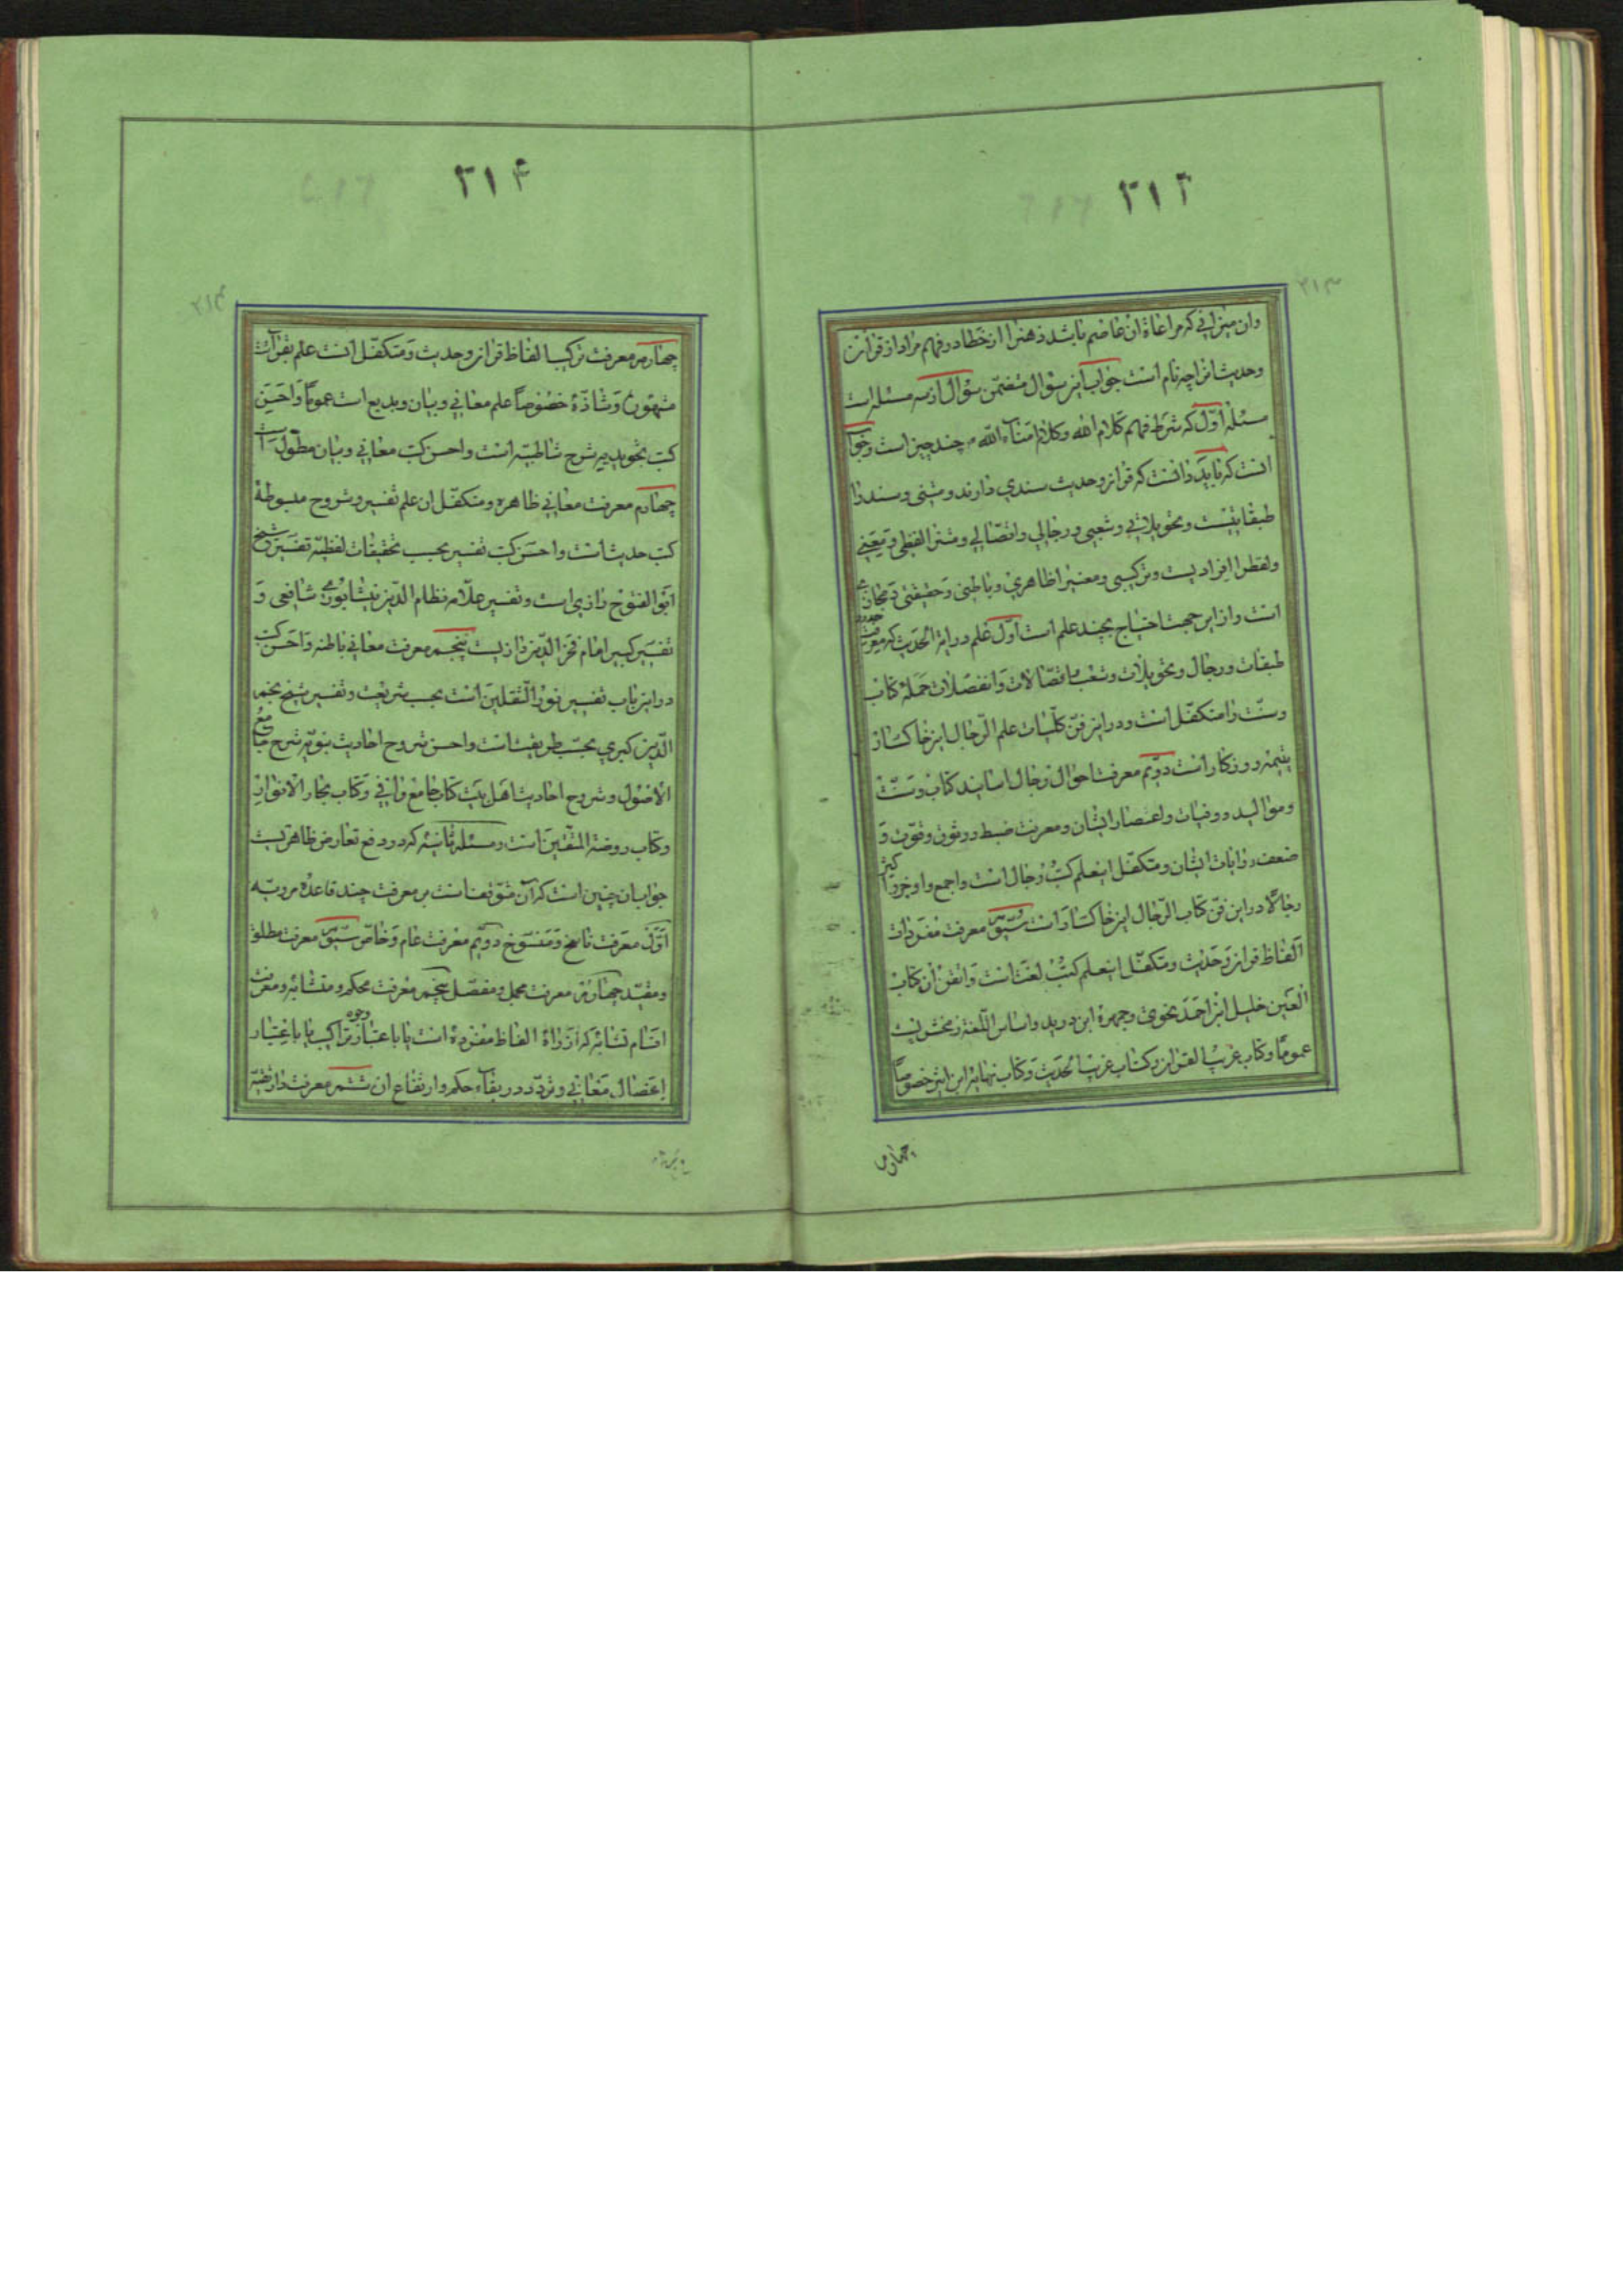 ۳۱۳
وان میزانی که مراعاة آن عاصم باشد ذهن را از خطا در فهم مراد از قرآن
و حدیث انرا چه نام است جواب این سؤال متضمن سؤال از سه مسئله است
مسئله اول که شرط فهم کلام الله و کلام امناء الله چند چیز است و جواب
انست که باید دانست که قران و حدیث سندی دارند و متنی و سند را
طبقاتیست و تحویلاتی و شعبی و رجالی و اتصالی و متن را لفظی و معنیی
و لفظ را افرادیست و ترکیبی و معنی را ظاهری و باطنی و حقیقتی و مجازی
است و از این جهت احتیاج بچند علم است اول علم درایة الحدیث که معرفت حدود
طبقات و رجال و تحویلات و شعب و اتصالات و انفصلات جمله کتاب
و سنت را متکفل است و در این فن کلیات علم الرجال این خاکسار
یتیمه روزکار است دویم معرفت احوال رجال اسانید کتاب و سنت
و موالید و وفیات و اعصار ایشان و معرفت ضبط و وثوق و قوت و
ضعف روایات ایشان و متکفل اینعلم کتب رجال است و اجمع و اوجز
رجالا در این فن کتاب الرجال این خاکسار است سیّم معرفت مفردات
الفاظ قران و حدیث و متکفل اینعلم کتب لغت است و اتقن ان کتاب
العین خلیل ابن احمد نحوی و جمهرة ابن درید و اساس اللغة زمخشریست
عموما و کتاب غریب القران و کتاب غریب الحدیث و کتاب نهایه ابن اثیر خصوصا
چهارم
۳۱۴
چهارم معرفت ترکیب الفاظ قران و حدیث و متکفل انست علم بقرآت
مشهوره و شاذه خصوصا علم معانی و بیان و بدیع است عموما و احسن
کتب تجویدیه شرح شاطبیه است و احسن کتب معانی و بیان مطول است
چهارم معرفت معانی ظاهره و متکفل ان علم تفسیر و شروح مبسوطه
کتب حدیث است و احسن کتب تفسیر بحسب تحقیقات لفظیه تفسیر شیخ
ابو الفتوح رازی است و تفسیر علامه نظام الدین نیشابوری شافعی و
تفسیر کبیر امام فخر الدین رازیست پنجم معرفت معانی باطنه و احسن کتب
در این باب تفسیر نور الثقلین است بحسب شریعت و تفسیر شیخ نجم
الدین کبری بحسب طریقت است و احسن شروح احادیث نبویه شرح جامع
الاصول و شروح احادیث اهل بیت کتاب جامع وافی و کتاب بحار الانوار
و کتاب روضة المتقین است و مسئله ثانیه که در دفع تعارض ظاهریست
جواب ان چنین است که آن متوقفست بر معرفت چند قاعده مرویه
اول معرفت ناسخ و منسوخ دویم معرفت عام و خاص سیّم معرفت مطلق
و مقید چهارم معرفت مجمل و مفصل پنجم معرفت محکم و متشابه و معرفت
اقسام تشابه که از راه الفاظ مفرده است یا باعتبار وجوه تراکیب یا باعتبار
اعضال معانی و تردد در بقاء حکم و ارتفاع ان ششم معرفت